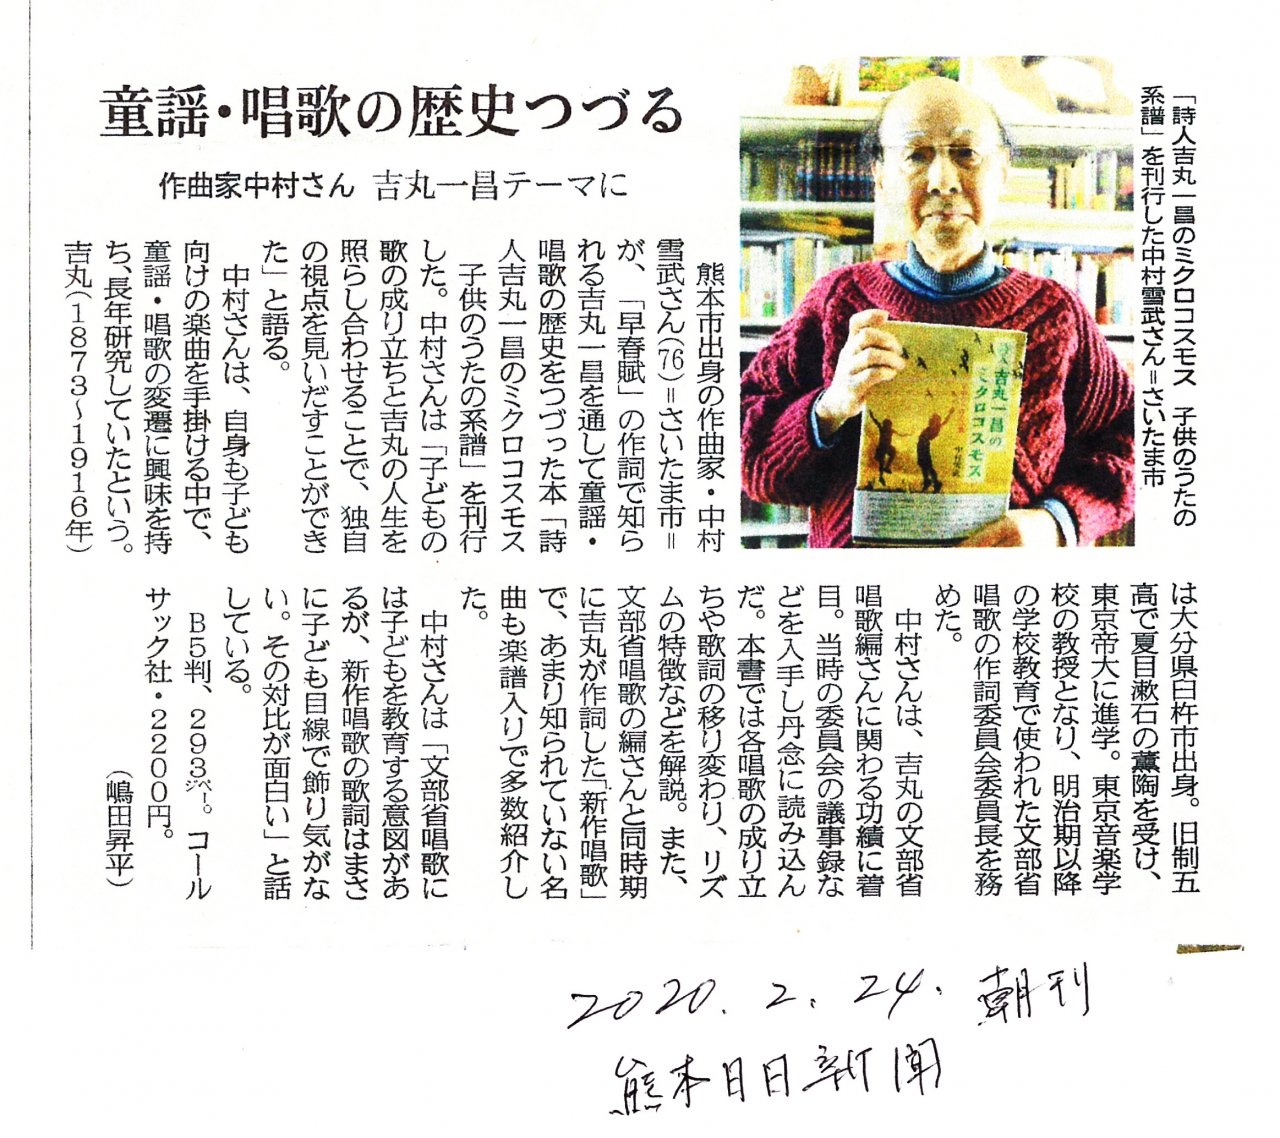 童謡・唱歌の歴史つづる
作曲家中村さん 吉丸一昌テーマに
「詩人吉丸一昌のミクロコスモス 子供のうたの
系譜」を刊行した中村雪武さん＝さいたま市
吉丸一昌の
ミクロコスモス
熊本市出身の作曲家・中村
雪武さん(76)＝さいたま市＝
が、「早春賦」の作詞で知ら
れる吉丸一昌を通して童謡・
唱歌の歴史をつづった本「詩
人吉丸一昌のミクロコスモス
子供のうたの系譜」を刊行
した。中村さんは「子どもの
歌の成り立ちと吉丸の人生を
照らし合わせることで、独自
の視点を見いだすことができ
た」と語る。
中村さんは、自身も子ども
向けの楽曲を手掛ける中で、
童謡・唱歌の変遷に興味を持
ち、長年研究していたという。
吉丸(1873～1916年)
は大分県臼杵市出身。旧制五
高で夏目漱石の薫陶を受け、
東京帝大に進学。東京音楽学
校の教授となり、明治期以降
の学校教育で使われた文部省
唱歌の作詞委員会委員長を務
めた。
中村さんは、吉丸の文部省
唱歌編さんに関わる功績に着
目。当時の委員会の議事録な
どを入手し丹念に読み込ん
だ。本書では各唱歌の成り立
ちや歌詞の移り変わり、リズ
ムの特徴などを解説。また、
文部省唱歌の編さんと同時期
に吉丸が作詞した「新作唱歌」
で、あまり知られていない名
曲も楽譜入りで多数紹介し
た。
中村さんは「文部省唱歌に
は子どもを教育する意図があ
るが、新作唱歌の歌詞はまさ
に子ども目線で飾り気がな
い。その対比が面白い」と話
している。
Ｂ5判、293㌻。コール
サック社・2200円。
(嶋田昇平)
2020.2.24.朝刊
熊本日日新聞